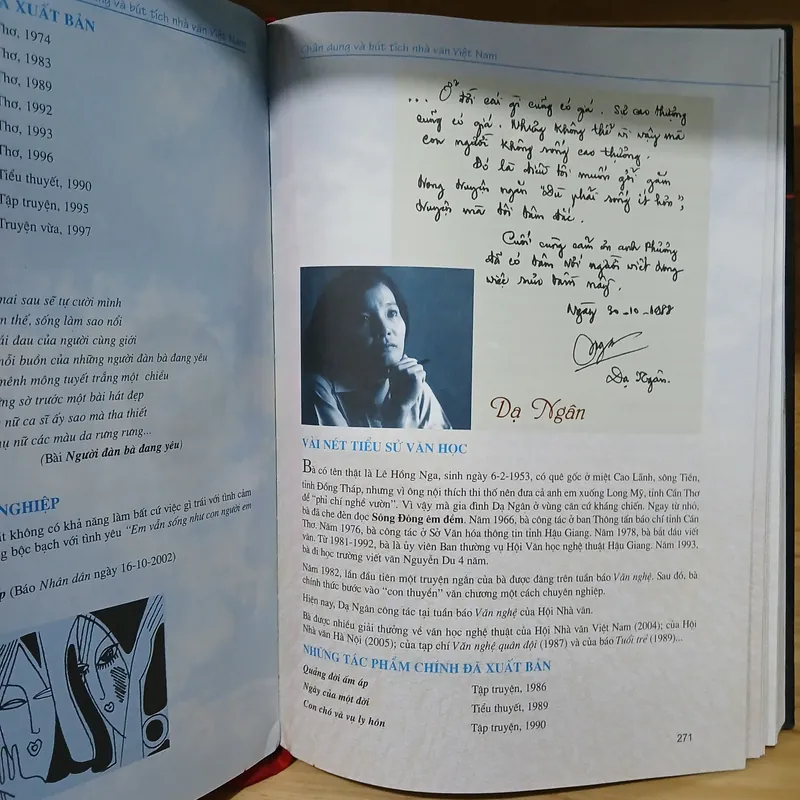 ng và bút tích nhà văn Việt Nam
Ã XUẤT BẢN
Thơ, 1974
Thơ, 1983
Thơ, 1989
Thơ, 1992
Thơ, 1993
Thơ, 1996
Tiểu thuyết, 1990
Tập truyện, 1995
Truyện vừa, 1997
mai sau sẽ tự cười mình
n thế, sống làm sao nổi
ái đau của người cùng giới
nỗi buồn của những người đàn bà đang yêu
mênh mông tuyết trắng một chiều
ng sờ trước một bài hát đẹp
nữ ca sĩ ấy sao mà tha thiết
ụ nữ các màu da rưng rưng...
(Bài Người đàn bà đang yêu)
NGHIỆP
t không có khả năng làm bất cứ việc gì trái với tình cảm
g bộc bạch với tình yêu “Em vẫn sống như con người em
p (Báo Nhân dân ngày 16-10-2002)
Chân dung và bút tích nhà văn Việt Nam
... Ở đời cái gì cũng có giá. Sự cao thượng
cũng có giá. Nhưng không thể vì vậy mà
con người không sống cao thượng.
Đó là điều tôi muốn gởi gắm
trong truyện ngắn "Dù phải sống ít hơn",
truyện mà tôi tâm đắc.
Cuối cùng cảm ơn anh Phương
đã có tâm với người viết trong
việc sưu tầm này.
Ngày 30-10-1988
Nga
Dạ Ngân.
Dạ Ngân
VÀI NÉT TIỂU SỬ VĂN HỌC
Bà có tên thật là Lê Hồng Nga, sinh ngày 6-2-1953, có quê gốc ở miệt Cao Lãnh, sông Tiền,
tỉnh Đồng Tháp, nhưng vì ông nội thích thi thố nên đưa cả anh em xuống Long Mỹ, tỉnh Cần Thơ
để “phỉ chí nghề vườn”. Vì vậy mà gia đình Dạ Ngân ở vùng căn cứ kháng chiến. Ngay từ nhỏ,
bà đã che đèn đọc Sông Đông êm đềm. Năm 1966, bà công tác ở ban Thông tấn báo chí tỉnh Cần
Thơ. Năm 1976, bà công tác ở Sở Văn hóa thông tin tỉnh Hậu Giang. Năm 1978, bà bắt đầu viết
văn. Từ 1981-1992, bà là ủy viên Ban thường vụ Hội Văn học nghệ thuật Hậu Giang. Năm 1993,
bà đi học trường viết văn Nguyễn Du 4 năm.
Năm 1982, lần đầu tiên một truyện ngắn của bà được đăng trên tuần báo Văn nghệ. Sau đó, bà
chính thức bước vào “con thuyền” văn chương một cách chuyên nghiệp.
Hiện nay, Dạ Ngân công tác tại tuần báo Văn nghệ của Hội Nhà văn.
Bà được nhiều giải thưởng về văn học nghệ thuật của Hội Nhà văn Việt Nam (2004); của Hội
Nhà văn Hà Nội (2005); của tạp chí Văn nghệ quân đội (1987) và của báo Tuổi trẻ (1989)...
NHỮNG TÁC PHẨM CHÍNH ĐÃ XUẤT BẢN
Quãng đời ấm áp Tập truyện, 1986
Ngày của một đời Tiểu thuyết, 1989
Con chó và vụ ly hôn Tập truyện, 1990
271